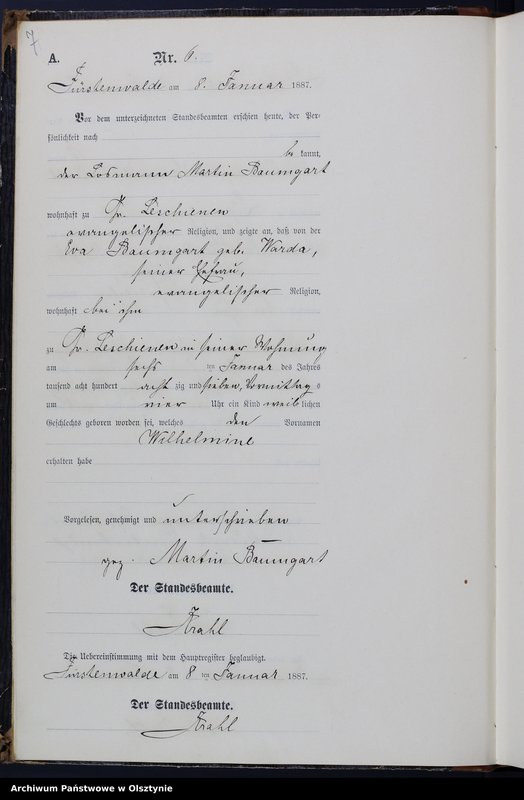 7
A. Nr. 6.
Fürstenwalde am 8. Januar 1887.
Vor dem unterzeichneten Standesbeamten erschien heute, der Per-
sönlichkeit nach
be kannt,
der Losmann Martin Baumgart
wohnhaft zu Gr. Leschienen
evangelischer Religion, und zeigte an, daß von der
Eva Baumgart geb. Warda,
seiner Ehefrau,
evangelischer Religion,
wohnhaft bei ihm
zu Gr. Leschienen in seiner Wohnung
am sechs ten Januar des Jahres
tausend acht hundert acht zig und sieben, Vormittag s
um vier Uhr ein Kind weib lichen
Geschlechts geboren worden sei, welches den Vornamen
Wilhelmine
erhalten habe
Vorgelesen, genehmigt und unterschrieben
gez. Martin Baumgart
Der Standesbeamte.
Die Uebereinstimmung mit dem Hauptregister beglaubigt.
Fürstenwalde am 8 ten Januar 1887.
Der Standesbeamte.
Archiwum Państwowe w Olsztynie